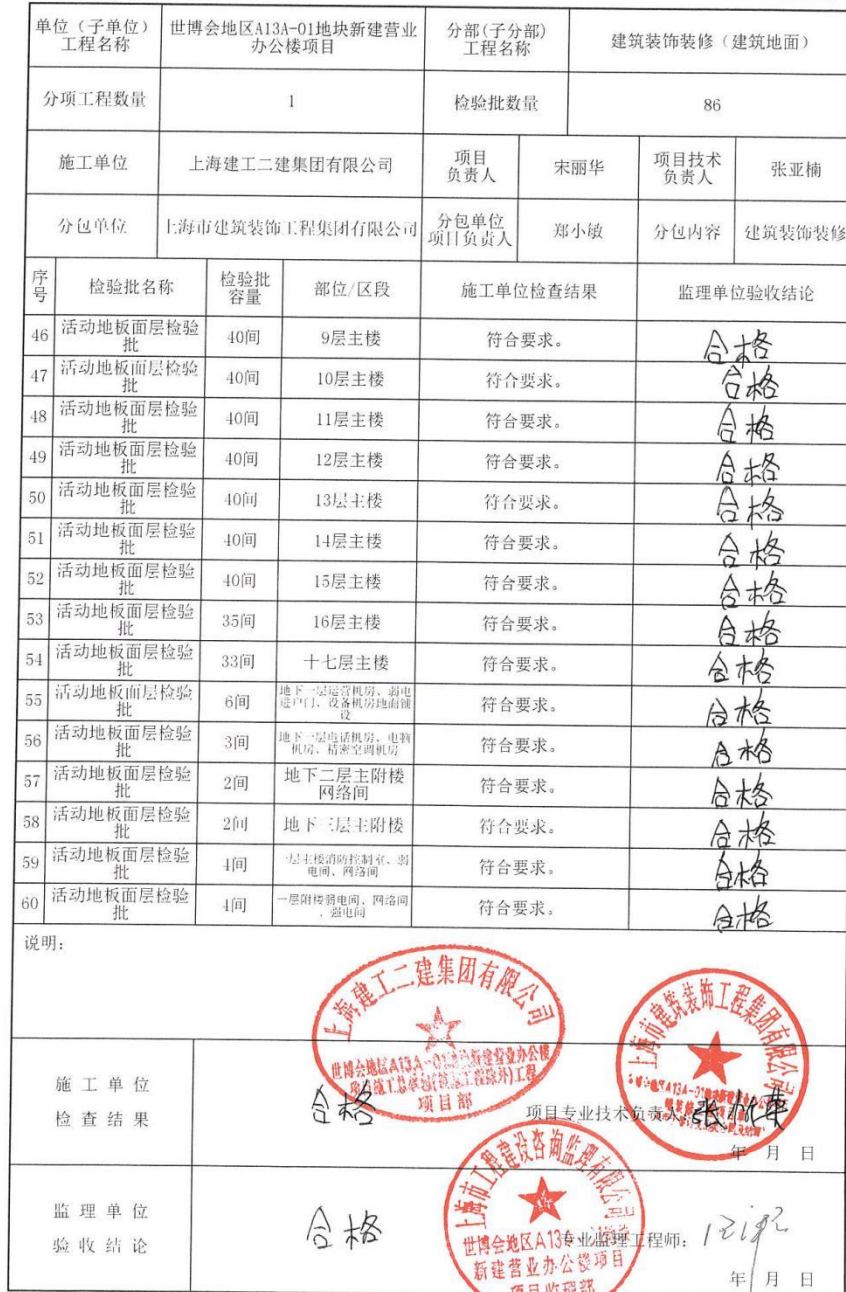 单位（子单位）工程名称 世博会地区A13A-01地块新建营业办公楼项目 分部(子分部)工程名称 建筑装饰装修（建筑地面）
分项工程数量 1 检验批数量 86
施工单位 上海建工二建集团有限公司 项目负责人 宋丽华 项目技术负责人 张亚楠
分包单位 上海市建筑装饰工程集团有限公司 分包单位项目负责人 郑小敏 分包内容 建筑装饰装修
序号 检验批名称 检验批容量 部位/区段 施工单位检查结果 监理单位验收结论
46 活动地板面层检验批 40间 9层主楼 符合要求。 合格
47 活动地板面层检验批 40间 10层主楼 符合要求。 合格
48 活动地板面层检验批 40间 11层主楼 符合要求。 合格
49 活动地板面层检验批 40间 12层主楼 符合要求。 合格
50 活动地板面层检验批 40间 13层主楼 符合要求。 合格
51 活动地板面层检验批 40间 14层主楼 符合要求。 合格
52 活动地板面层检验批 40间 15层主楼 符合要求。 合格
53 活动地板面层检验批 35间 16层主楼 符合要求。 合格
54 活动地板面层检验批 33间 十七层主楼 符合要求。 合格
55 活动地板面层检验批 6间 地下一层运营机房、弱电进户门、设备机房地面铺设 符合要求。 合格
56 活动地板面层检验批 3间 地下一层电话机房、电脑机房、精密空调机房 符合要求。 合格
57 活动地板面层检验批 2间 地下二层主附楼网络间 符合要求。 合格
58 活动地板面层检验批 2间 地下三层主附楼 符合要求。 合格
59 活动地板面层检验批 4间 一层主楼消防控制室、弱电间、网络间 符合要求。 合格
60 活动地板面层检验批 4间 一层附楼弱电间、网络间、强电间 符合要求。 合格
说明：
上海建工二建集团有限公司
世博会地区A13A-01地块新建营业办公楼
项目部
上海市建筑装饰工程集团有限公司
施工单位检查结果 合格 项目专业技术负责人：
年 月 日
上海市工程建设咨询监理有限公司
世博会地区A13A
新建营业办公楼项目
项目监理部
监理单位验收结论 合格 专业监理工程师：
年 月 日